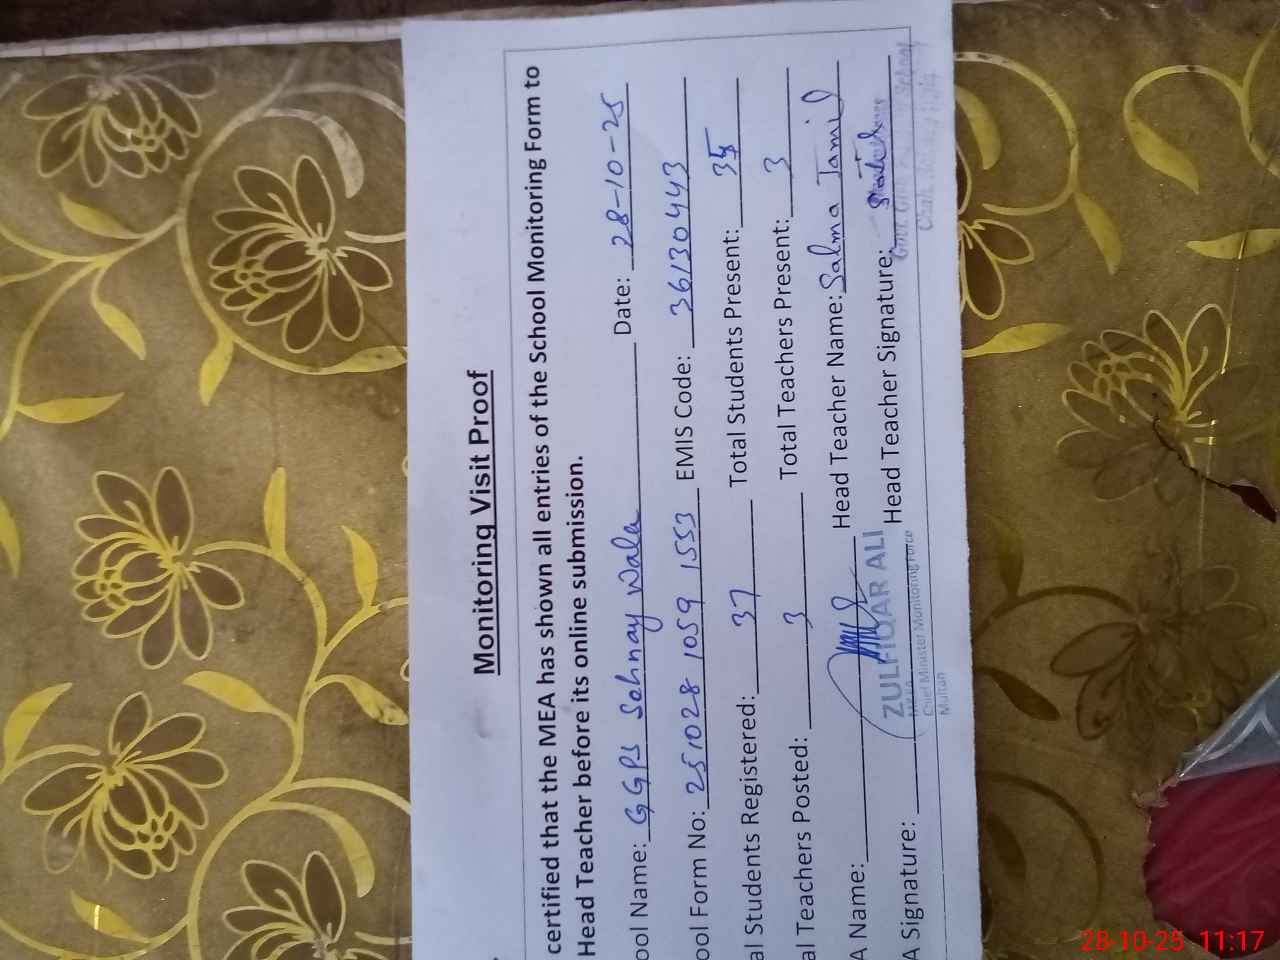 Monitoring Visit Proof
certified that the MEA has shown all entries of the School Monitoring Form to
Head Teacher before its online submission.
ool Name: GGPS Sehnay Wala Date: 28-10-25
ool Form No: 251028 1059 1553 EMIS Code: 36130443
al Students Registered: 37 Total Students Present: 35
al Teachers Posted: 3 Total Teachers Present: 3
A Name: Head Teacher Name: Salma Jamil
A Signature: Head Teacher Signature:
ZULFIQAR ALI
Chief Minister Monitoring Force
Multan
28-10-25 11:17